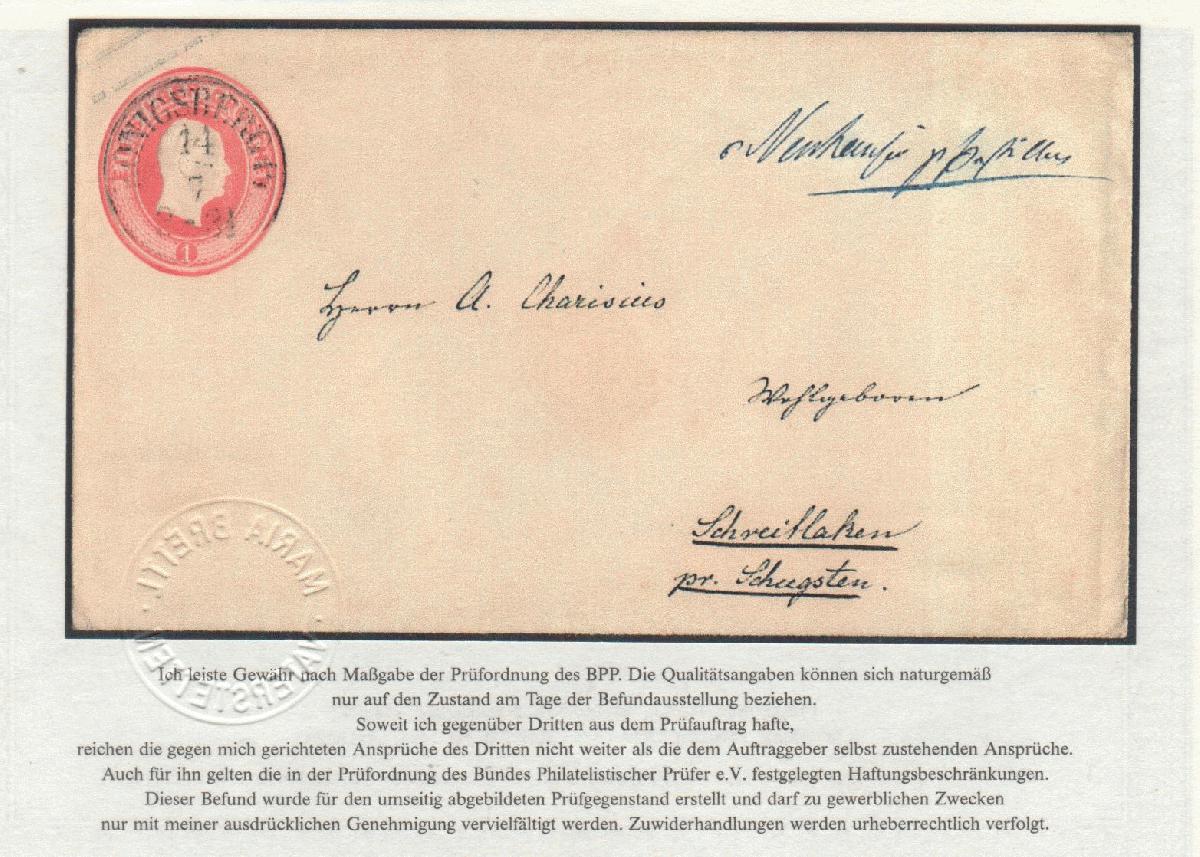 KÖNIGSBERG
14
7
1
Herrn A. Charisius
Wohlgeboren
Schreitlaken
pr. Schugsten.
MARIA BREHT
VATERSTETTEN
Ich leiste Gewähr nach Maßgabe der Prüfordnung des BPP. Die Qualitätsangaben können sich naturgemäß
nur auf den Zustand am Tage der Befundausstellung beziehen.
Soweit ich gegenüber Dritten aus dem Prüfauftrag hafte,
reichen die gegen mich gerichteten Ansprüche des Dritten nicht weiter als die dem Auftraggeber selbst zustehenden Ansprüche.
Auch für ihn gelten die in der Prüfordnung des Bundes Philatelistischer Prüfer e.V. festgelegten Haftungsbeschränkungen.
Dieser Befund wurde für den umseitig abgebildeten Prüfgegenstand erstellt und darf zu gewerblichen Zwecken
nur mit meiner ausdrücklichen Genehmigung vervielfältigt werden. Zuwiderhandlungen werden urheberrechtlich verfolgt.